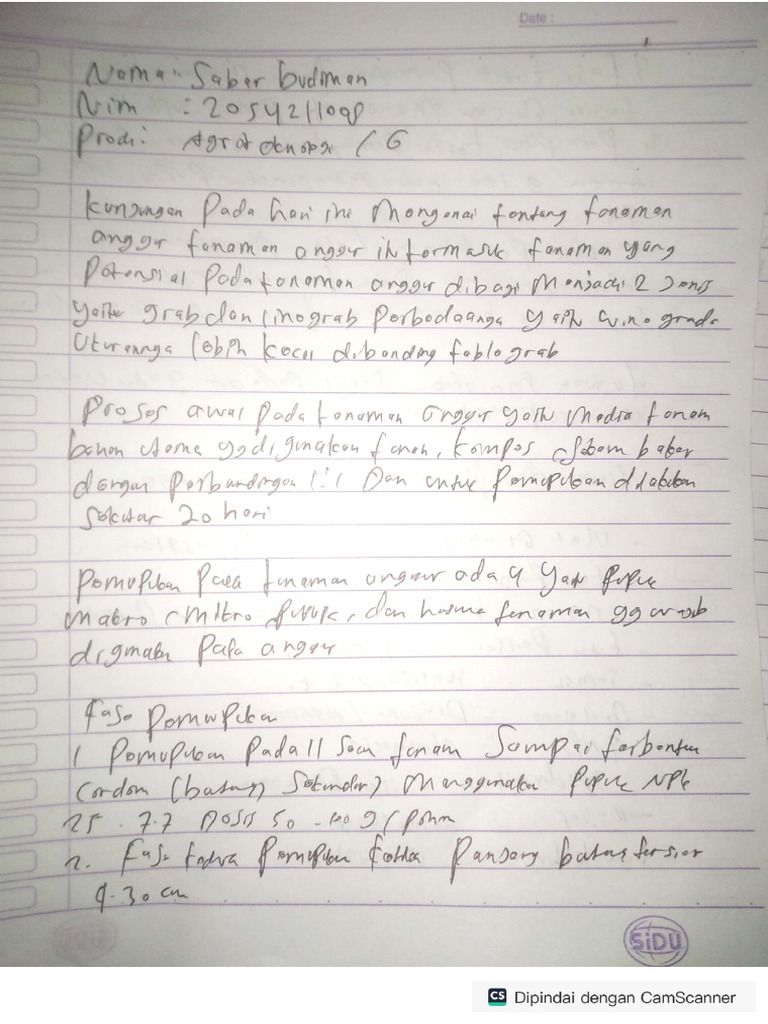 Date :
Nama : Saber budiman
Nim : 2054211098
Prodi : Agroteknopgi / 6
kunjungan Pada hari ini Mengenai tentang tanaman
anggur tanaman anggur intormasuk tanaman yang
Potensial Pada tanaman anggur dibagi Menjadi 2 Jenis
yaitu grab dan Vinograb Perbedaanga yaitu
Ukurannya lebih kecil dibanding tablograb
Proses awal Pada tanaman anggur yaitu Media tanam
bahan utama yg digunakan tanah, kompos, Sekam bakar
dengan Perbandingan 1:1 Dan untuk Pemupukan dilakukan
Sekitar 20 hari
Pemupukan Pada tanaman anggur ada 4 yaitu Pupuk
makro, mikro Pupuk, dan tanaman yg
digunakan Pada anggur
Fase Pemupukan
1 Pemupukan Pada 11 Saat tanam Sampai terbentuk
Cordon (batang Sekunder) Menggunakan Pupuk NPK
25 . 7.7 Dosis 50 - 100 g / Pohon
2. Fase kedua Pemupukan Ketika Panjang batang tersier
9-30 cm
SiDU
CS Dipindai dengan CamScanner